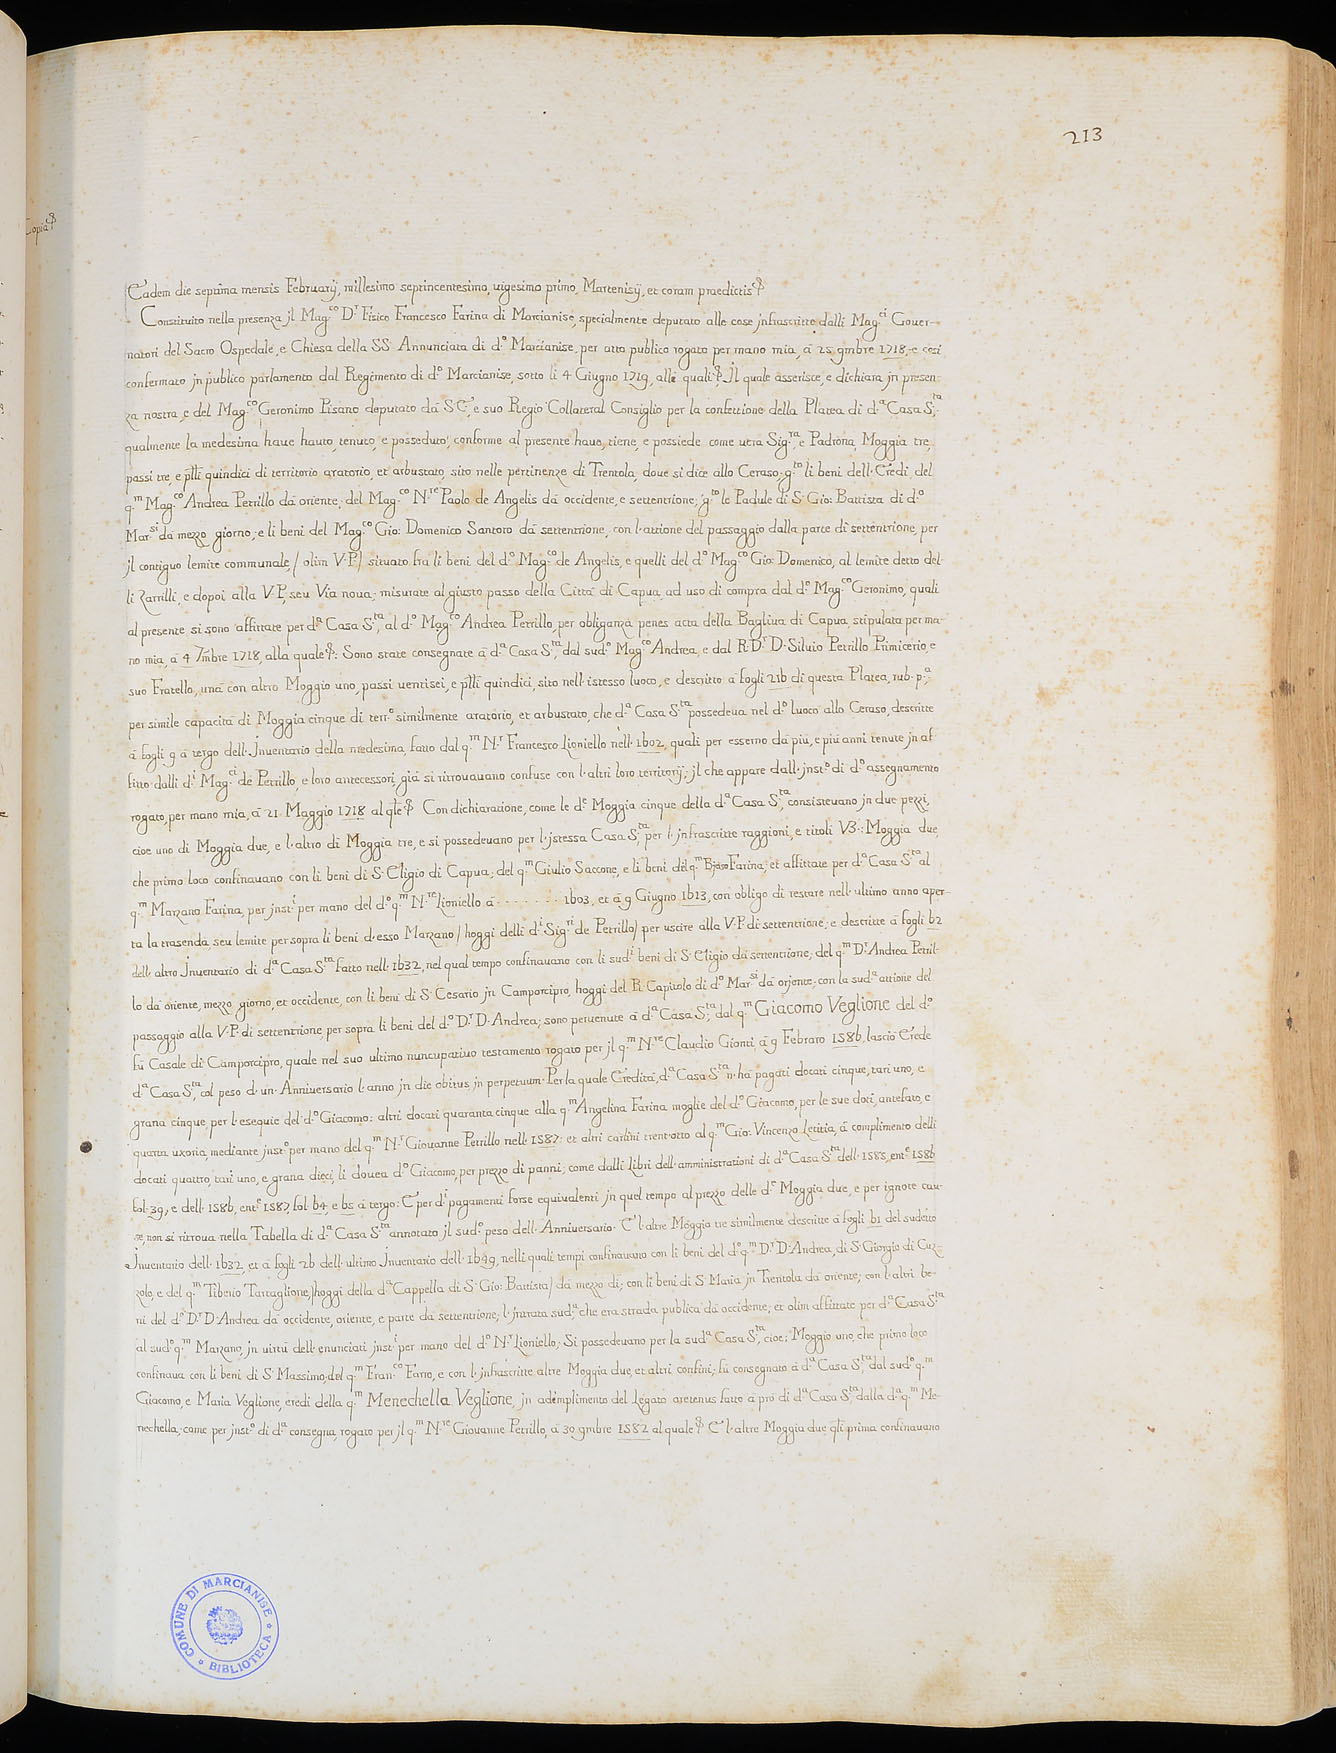 213
Copia
Eadem die septima mensis Februarij, millesimo septincentesimo, uigesimo primo, Martenisij, et coram praedictis
Constituito nella presenza jl Mag.co D.r Fisico Francesco Farina di Marcianise, specialmente deputato alle cose jnfrascritte dalli Mag.ci Gouer-
natori del Sacro Ospedale, e Chiesa della SS. Annunciata di d.o Marcianise, per atto publico rogato per mano mia, à 25 9mbre 1718, e così
confermato jn publico parlamento dal Regimento di d.o Marcianise, sotto li 4 Giugno 1719, alli quali. Jl quale asserisce, e dichiara jn presen-
za nostra, e del Mag.co Geronimo Pisano deputato da S.C., e suo Regio Collateral Consiglio per la confettione della Platea di d.a Casa S.ta,
qualmente la medesima haue hauto, tenuto, e posseduto, conforme al presente haue, tiene, e possiede come uera Sig.ra, e Padrona, Moggia tre,
passi tre, e p̃lli quindici di territorio aratorio, et arbustato, sito nelle pertinenze di Trentola, doue si dice allo Ceraso; g.to li beni dell'Eredi del
q.m Mag.co Andrea Petrillo da oriente; del Mag.co N.re Paolo de Angelis da occidente, e settentrione; g.to le Padule di S. Gio: Battista di d.o
Mar.si da mezzo giorno; e li beni del Mag.co Gio: Domenico Santoro da settentrione, con l'attione del passaggio dalla parte di settentrione, per
jl contiguo lemite communale, / olim V.P. / situato fra li beni del d.o Mag.co de Angelis, e quelli del d.o Mag.co Gio: Domenico, al lemite detto del-
li Zarrilli, e dopoi alla V.P., seu Via noua; misurate al giusto passo della Città di Capua, ad uso di compra dal d.o Mag.co Geronimo, quali
al presente si sono affittate per d.a Casa S.ta, al d.o Mag.co Andrea Petrillo, per obliganza penes acta della Bagliua di Capua stipulata per ma-
no mia, à 4 7mbre 1718, alla quale: Sono state consegnate à d.a Casa S.ta, dal sud.o Mag.co Andrea, e dal R.D.r D. Siluio Petrillo Primicerio, e
suo Fratello, una con altro Moggio uno, passi uentisei, e p̃lli quindici, sito nell'istesso luoco, e descritto a fogli 216 di questa Platea, rub. p.a,
per simile capacità di Moggia cinque di terr.o similmente aratorio, et arbustato, che d.a Casa S.ta possedeua nel d.o luoco allo Ceraso, descritte
à fogli 9 à tergo dell'Jnuentario della medesima, fatto dal q.m N.r Francesco Lioniello nell'1602, quali per esserno da più, e più anni tenute jn af-
fitto dalli d.i Mag.ci de Petrillo, e loro antecessori, già si ritrouauano confuse con l'altri loro territorij; jl che appare dall'jnst.o di d.o assegnamento
rogato, per mano mia, à 21 Maggio 1718 al q̃le. Con dichiaratione, come le d.e Moggia cinque della d.a Casa S.ta, consisteuano jn due pezzi,
cioe uno di Moggia due, e l'altro di Moggia tre, e si possedeuano per l'jstessa Casa S.ta, per l'jnfrascritte raggioni, e titoli V3.: Moggia due,
che primo loco confinauano con li beni di S. Eligio di Capua; del q.m Giulio Saccone, e li beni del q.m Farina; et affittate per d.a Casa S.ta al
q.m Marzano Farina, per jnst.i per mano del d.o q.m N.re Lioniello à . . . . . . . 1603, et à 9 Giugno 1613, con obligo di restare nell'ultimo anno aper-
ta la trasenda, seu lemite per sopra li beni d'esso Marzano / hoggi delli d.i Sig.ri de Petrillo / per uscire alla V.P. di settentrione; e descritte à fogli 62
dell'altro Jnuentario di d.a Casa S.ta fatto nell'1632, nel qual tempo confinauano con li sud.i beni di S. Eligio da settentrione; del q.m D.r Andrea Petril-
lo da oriente, mezzo giorno, et occidente, con li beni di S. Cesario jn Camporcipro, hoggi del R. Capitolo di d.o Mar.si da orjente; con la sud.a attione del
passaggio alla V.P. di settentrione, per sopra li beni del d.o D.r D. Andrea; sono peruenute à d.a Casa S.ta, dal q.m Giacomo Veglione del d.o
fù Casale di Camporcipro, quale nel suo ultimo nuncupatiuo testamento rogato per jl q.m N.re Claudio Gionti, à 9 Febraro 1586, lasciò Erede
d.a Casa S.ta, col peso d'un Anniuersario l'anno jn die obitus jn perpetuum. Per la quale Eredità, d.a Casa S.ta n'ha pagati docati cinque, tari uno, e
grana cinque, per l'esequie del d.o Giacomo: altri docati quaranta cinque alla q.m Angelina Farina moglie del d.o Giacomo, per le sue doti, antefato, e
quarta uxoria, mediante jnst.o per mano del q.m N.r Giouanne Petrillo nell'1587: et altri carlini trent'otto al q.m Gio: Vincenzo Letitia, à complimento delli
docati quattro, tari uno, e grana dieci, li douea d.o Giacomo, per prezzo di panni; come dalli libri dell'amministrationi di d.a Casa S.ta dell'1585, ent.e 1586
fol. 39, e dell'1586, ent.e 1587, fol. 64 e 65 à tergo: E per d.i pagamenti forse equiualenti jn quel tempo al prezzo delle d.e Moggia due, e per ignote cau-
se, non si ritroua nella Tabella di d.a Casa S.ta annotato jl sud.o peso dell'Anniuersario. E l'altre Moggia tre similmente descritte à fogli 61 del sudetto
Jnuentario dell'1632, et à fogli 26 dell'ultimo Jnuentario dell'1649, nelli quali tempi confinauano con li beni del d.o q.m D.r D. Andrea, di S. Giorgio di Cuz-
zolo, e del q.m Tiberio Tartaglione, / hoggi della d.a Cappella di S. Gio: Battista / da mezzo dì; con li beni di S. Maria jn Trentola da oriente; con l'altri be-
ni del d.o D.r D. Andrea da occidente, oriente, e parte da settentrione; l'jntrata sud.a, che era strada publica da occidente; et olim affittate per d.a Casa S.ta
al sud.o q.m Marzano, jn uirtù dell'enunciati jnst.i per mano del d.o N.r Lioniello; Si possedeuano per la sud.a Casa S.ta, cioe: Moggio uno, che primo loco
confinaua con li beni di S. Massimo, del q.m Fran.co Farro, e con l'jnfrascritte altre Moggia due, et altri confini; fù consegnato à d.a Casa S.ta dal sud.o q.m
Giacomo, e Maria Veglione, eredi della q.m Menechella Veglione, jn adèmplimento del Legato aretenus fatto à prò di d.a Casa S.ta dalla d.a q.m Me-
nechella; come per jnst.o di d.a consegna, rogato per jl q.m N.re Giouanne Petrillo, à 30 9mbre 1582 al quale. E l'altre Moggia due q̃li prima confinauano
COMUNE DI MARCIANISE * BIBLIOTECA *